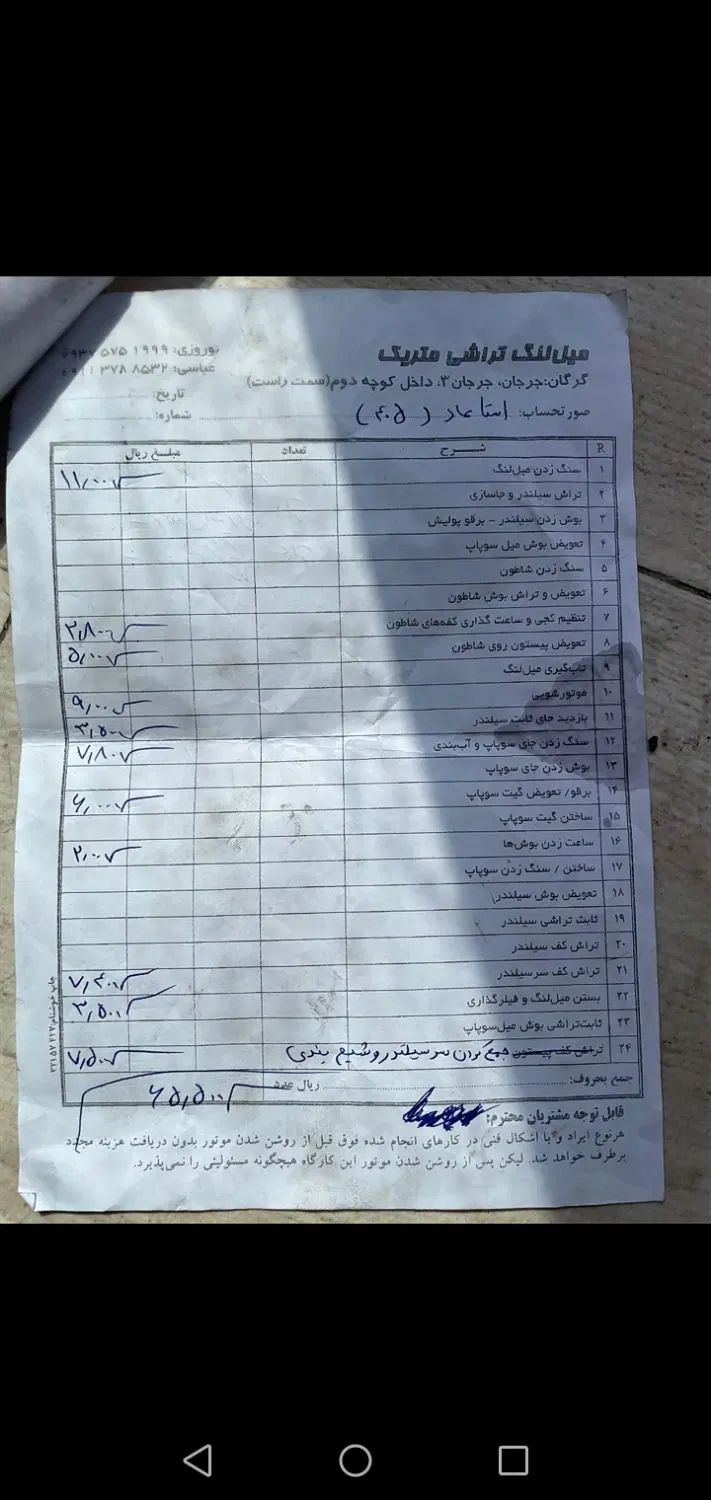 میل‌لنگ تراشی متریک
نوروزی: ۱۹۹۹ ۵۷۵ ۰۹۳۷
گرگان:جرجان، جرجان ۳، داخل کوچه دوم(سمت راست)
عباسی: ۸۵۳۲ ۳۷۸ ۰۹۱۱
تاریخ:
صورتحساب: استا عماد (۴۰۵)
شماره:
R شـــرح تعداد مبلـــغ ریال
۱ سنگ زدن میل‌لنگ ۱۱٫۰۰۰
۲ تراش سیلندر و جاسازی
۳ بوش زدن سیلندر - برقو پولیش
۴ تعویض بوش میل سوپاپ
۵ سنگ زدن شاطون
۶ تعویض و تراش بوش شاطون
۷ تنظیم کجی و ساعت گذاری کفه‌های شاطون ۲٫۸۰۰
۸ تعویض پیستون روی شاطون ۵٫۰۰۰
۹ تاب‌گیری میل‌لنگ
۱۰ موتورشویی ۹٫۰۰۰
۱۱ بازدید جای ثابت سیلندر ۳٫۵۰۰
۱۲ سنگ زدن جای سوپاپ و آب‌بندی ۷٫۸۰۰
۱۳ بوش زدن جای سوپاپ
۱۴ برقو/ تعویض گیت سوپاپ ۶٫۰۰۰
۱۵ ساختن گیت سوپاپ
۱۶ ساعت زدن بوش‌ها ۲٫۰۰۰
۱۷ ساختن / سنگ زدن سوپاپ
۱۸ تعویض بوش سیلندر
۱۹ ثابت تراشی سیلندر
۲۰ تراش کف سیلندر
۲۱ تراش کف سرسیلندر ۷٫۴۰۰
۲۲ بستن میل‌لنگ و فیلرگذاری ۳٫۵۰۰
۲۳ ثابت‌تراشی بوش میل‌سوپاپ
۲۴ تراش کف پیستون جمع کردن سر سیلندر و شیم بندی ۷٫۵۰۰
جمع بحروف: ریال عدد ۶۵٫۵۰۰
قابل توجه مشتریان محترم:
هرنوع ایراد و یا اشکال فنی در کارهای انجام شده فوق قبل از روشن شدن موتور بدون دریافت هزینه مجدد
برطرف خواهد شد. لیکن پس از روشن شدن موتور این کارگاه هیچگونه مسئولیتی را نمی‌پذیرد.
چاپ خوشنام: ۳۲۱۵۷۴۲۷